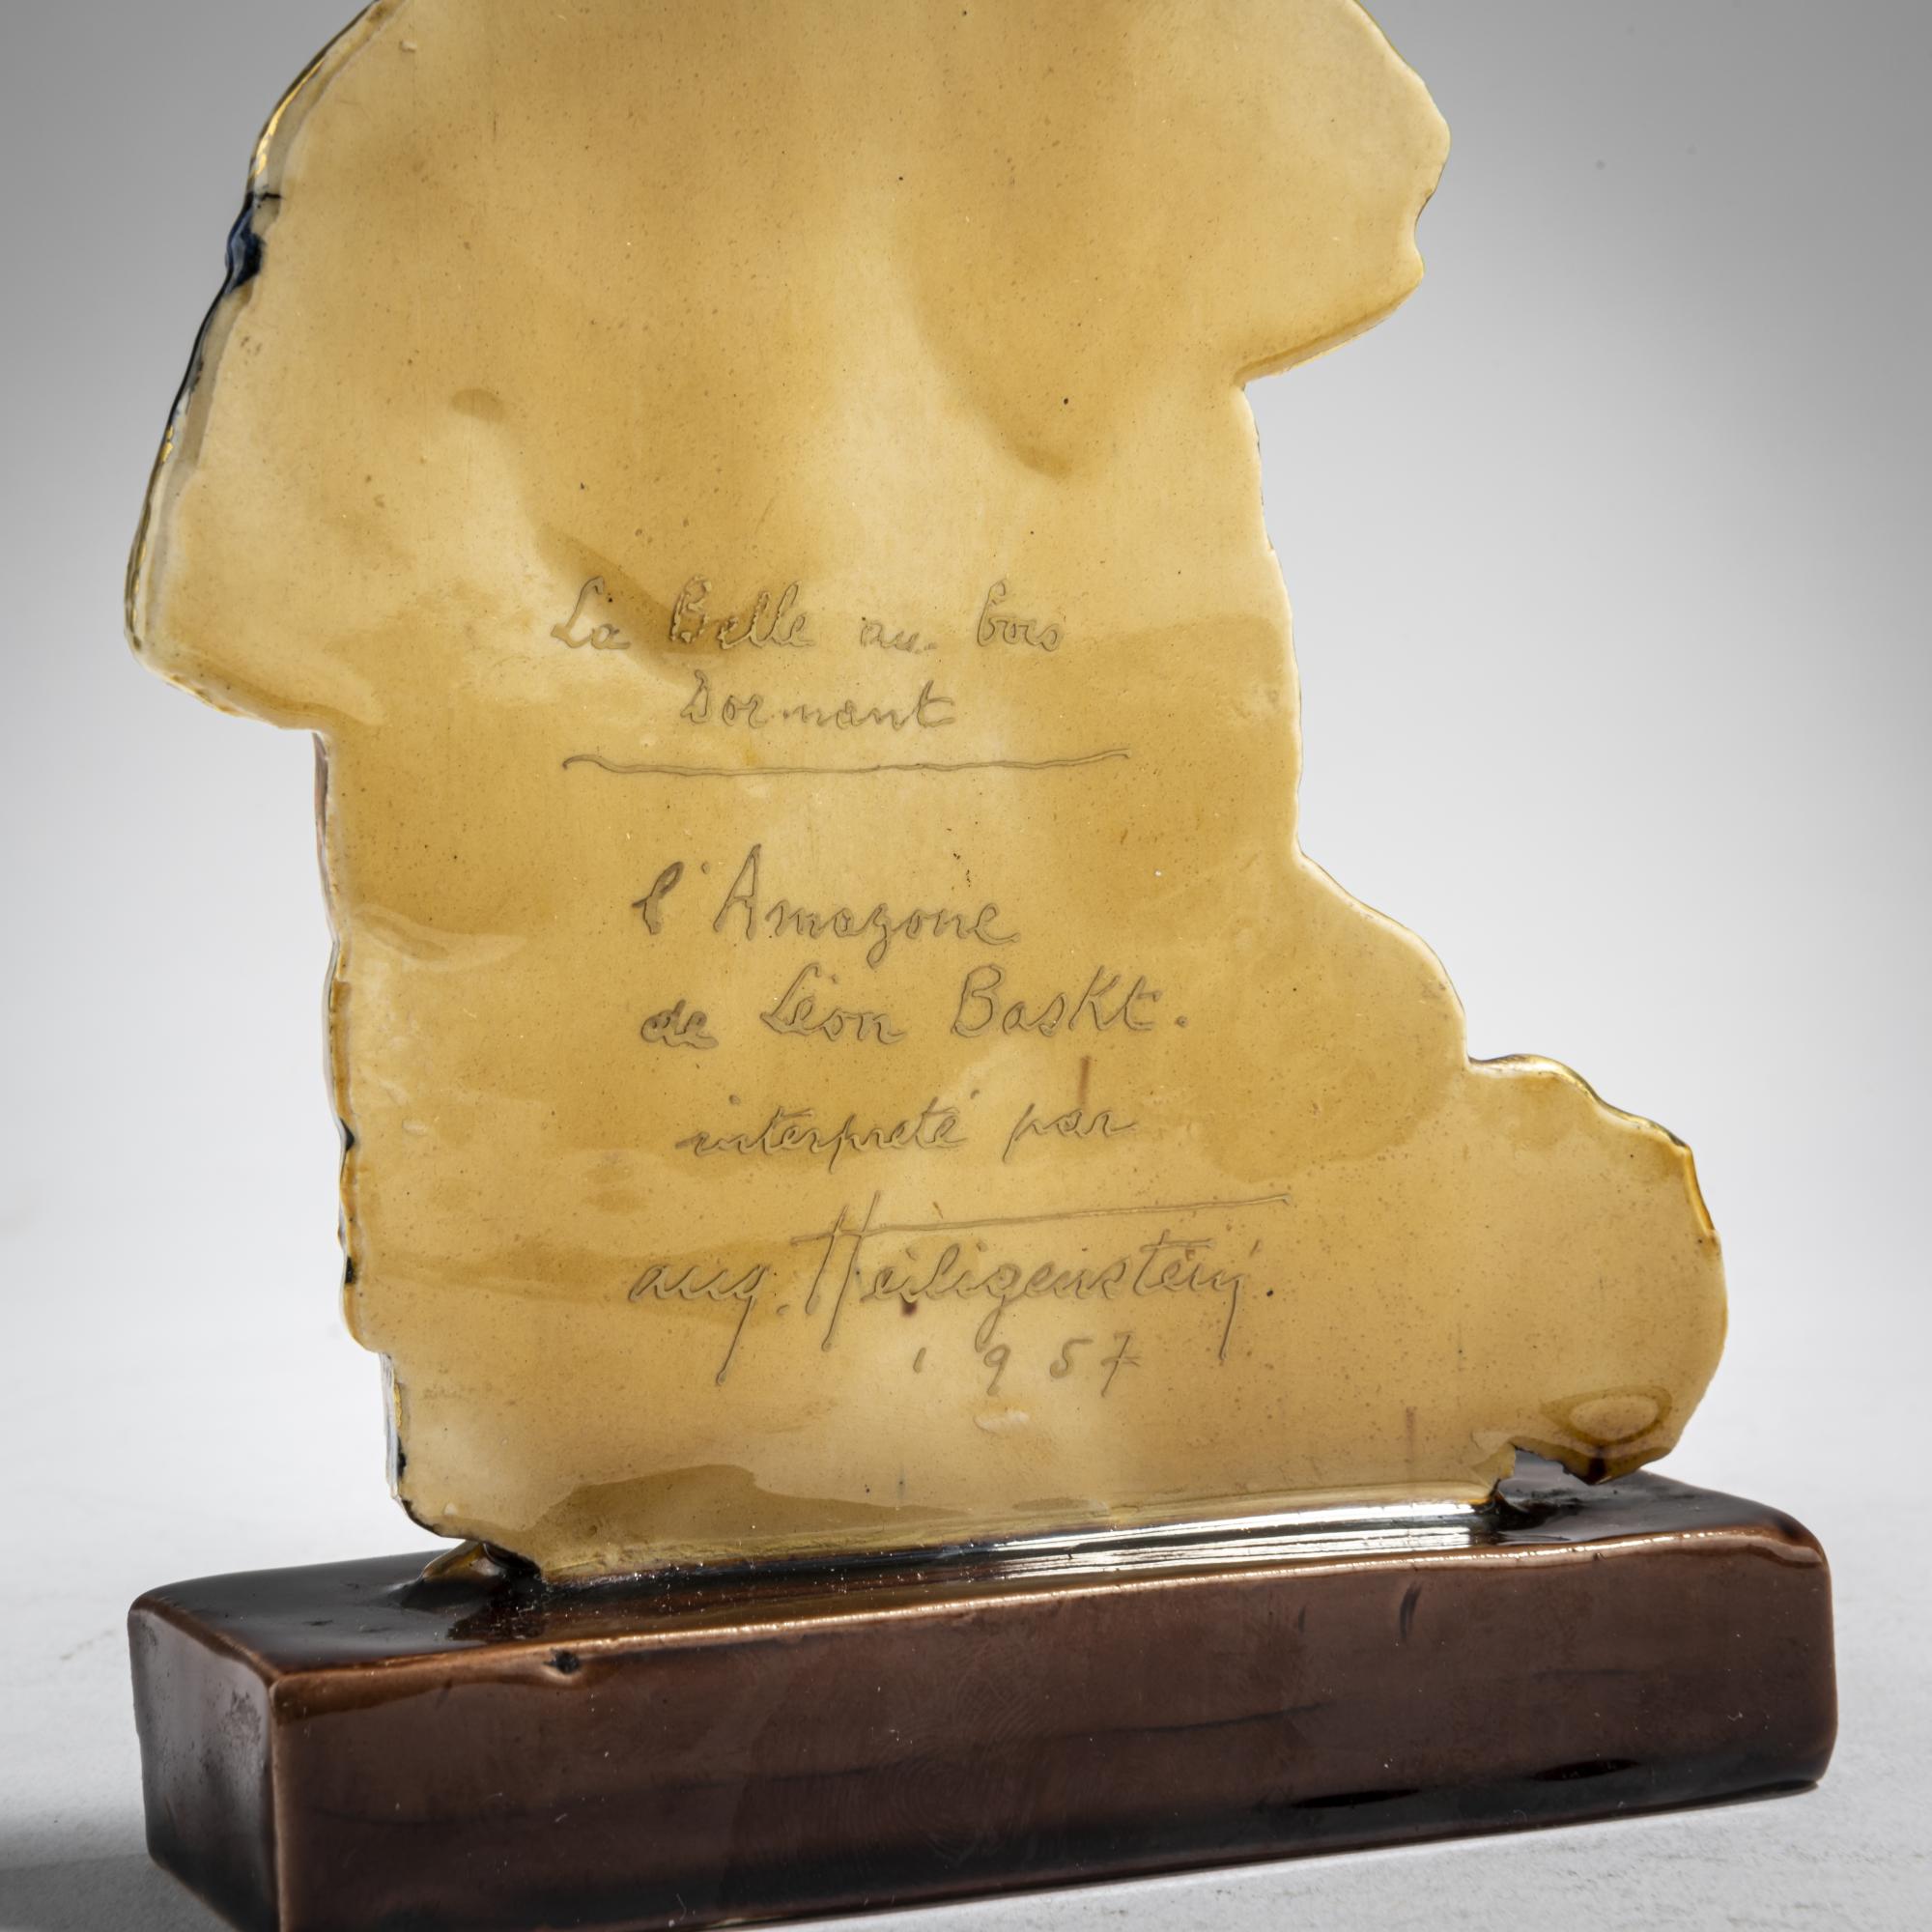 La Belle au bois
Dormant
l'Amazone
de Léon Baskt.
interpreté par
aug. Heiligenstein.
1957